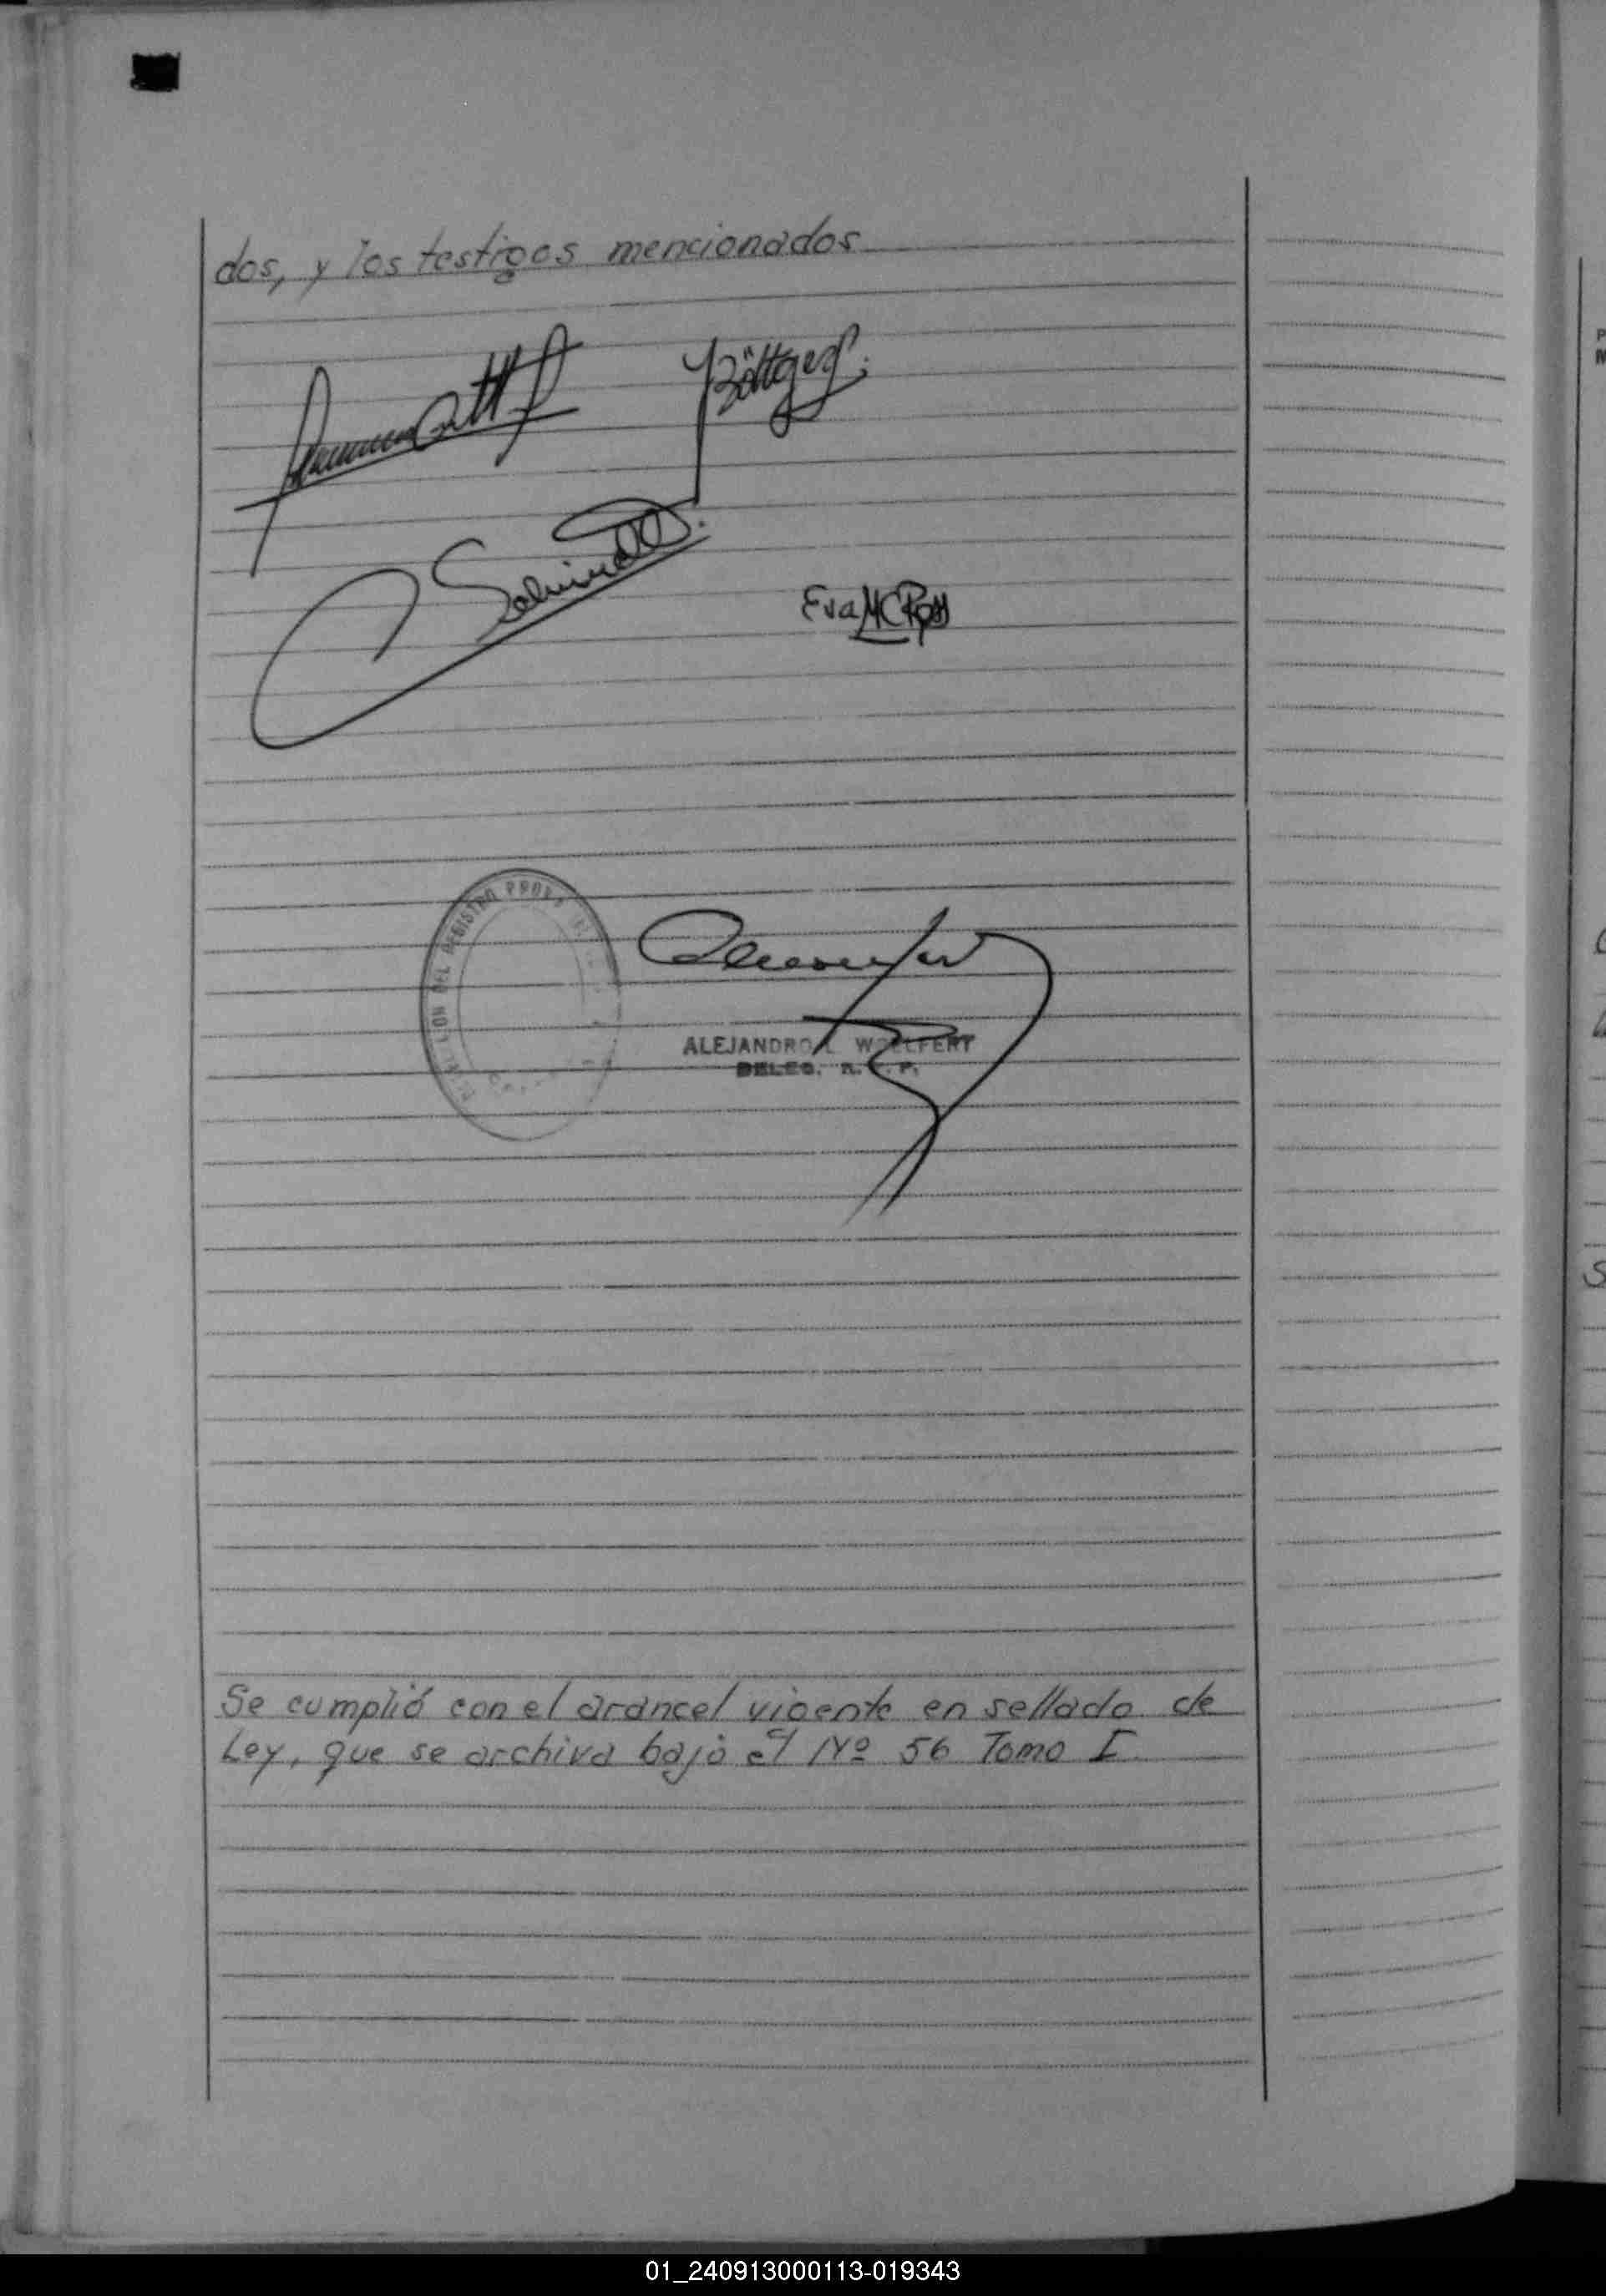 dos, y los testigos mencionados
Böttger
Schmidt
Eva MC Ross
DEL REGISTRO PROV
ALEJANDRO L. WOELFERT
DELEG. R. P.
Se cumplió con el arancel vigente en sellado de
Ley, que se archiva bajo el Nº 56 Tomo I.
01_240913000113-019343